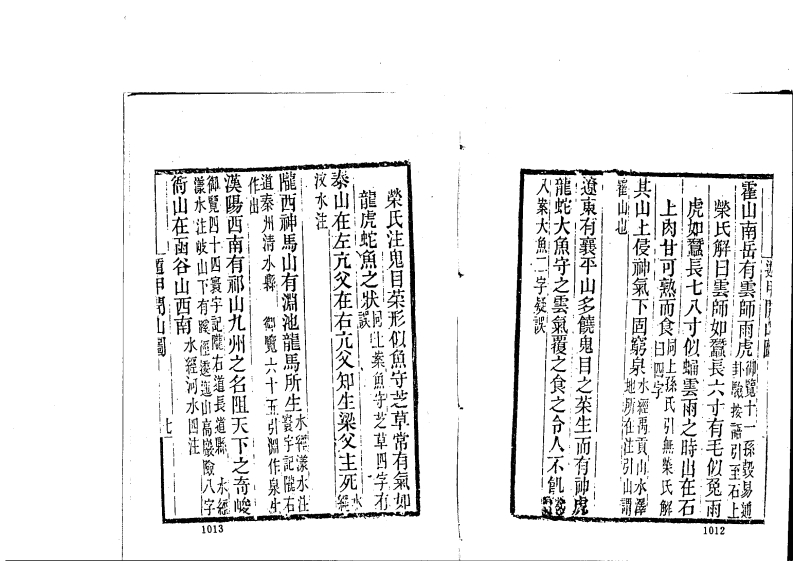 霍山南岳有雲師雨虎御覽十一孫瑴易通卦驗按語引至石上
榮氏解曰雲師如蠶長六寸有毛似兔雨
虎如蠶長七八寸似蛹雲雨之時出在石
上肉甘可熟而食同上孫氏引無榮氏解曰四字
其山上侵神氣下固窮泉水經禹貢山水澤地所在注引山謂
霍山也
遼東有襄平山多饒鬼目之菜生而有神虎
龍蛇大魚守之雲氣覆之食之令人不飢
入案大魚二字疑誤
1012
榮氏注鬼目菜形似魚守芝草常有氣如
龍虎蛇魚之狀同上案魚守芝草四字有誤
泰山在左亢父在右亢父知生梁父主死水經
汶水注
隴西神馬山有淵池龍馬所生水經漾水注寰宇記隴右
道秦州清水縣 御覽六十五引淵作泉生
作出
漢陽西南有祁山九州之名阻天下之奇峻
御覽四十四寰宇記隴右道長道縣 水經
漾水注岐山下有蹊徑逶迤山高巖險八字
衙山在函谷山西南水經河水四注
遁甲開山圖
七
1013